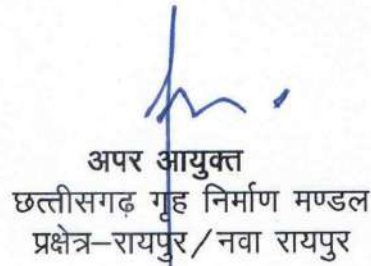 अपर आयुक्त
छत्तीसगढ़ गृह निर्माण मण्डल
प्रक्षेत्र–रायपुर/नवा रायपुर